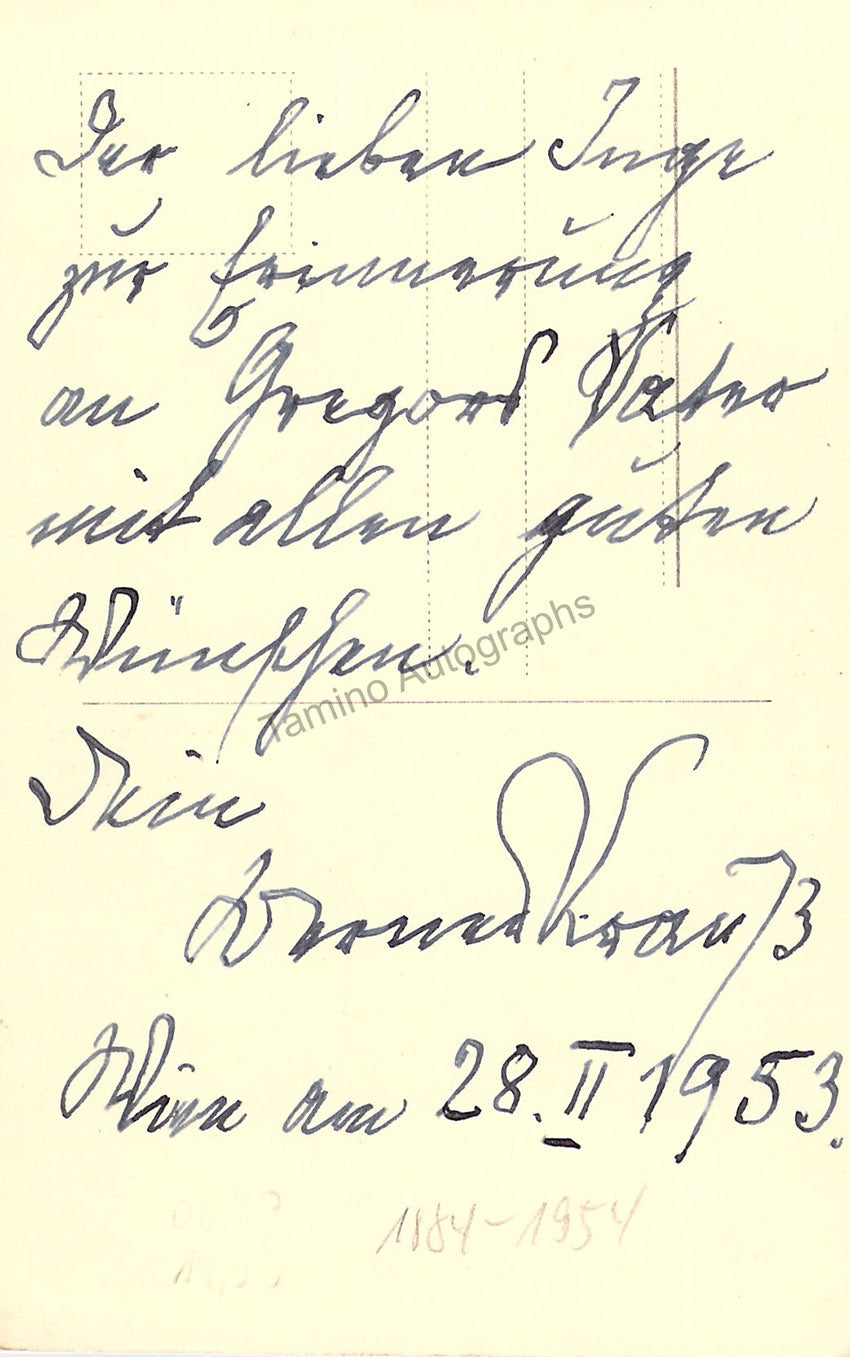 Der lieben Inge
zur Erinnerung
an Gregors Vater
mit allen guten
Wünschen.
Tamino Autographs
Dein
Werner Krauß
Wien am 28. II 1953.
1884-1954